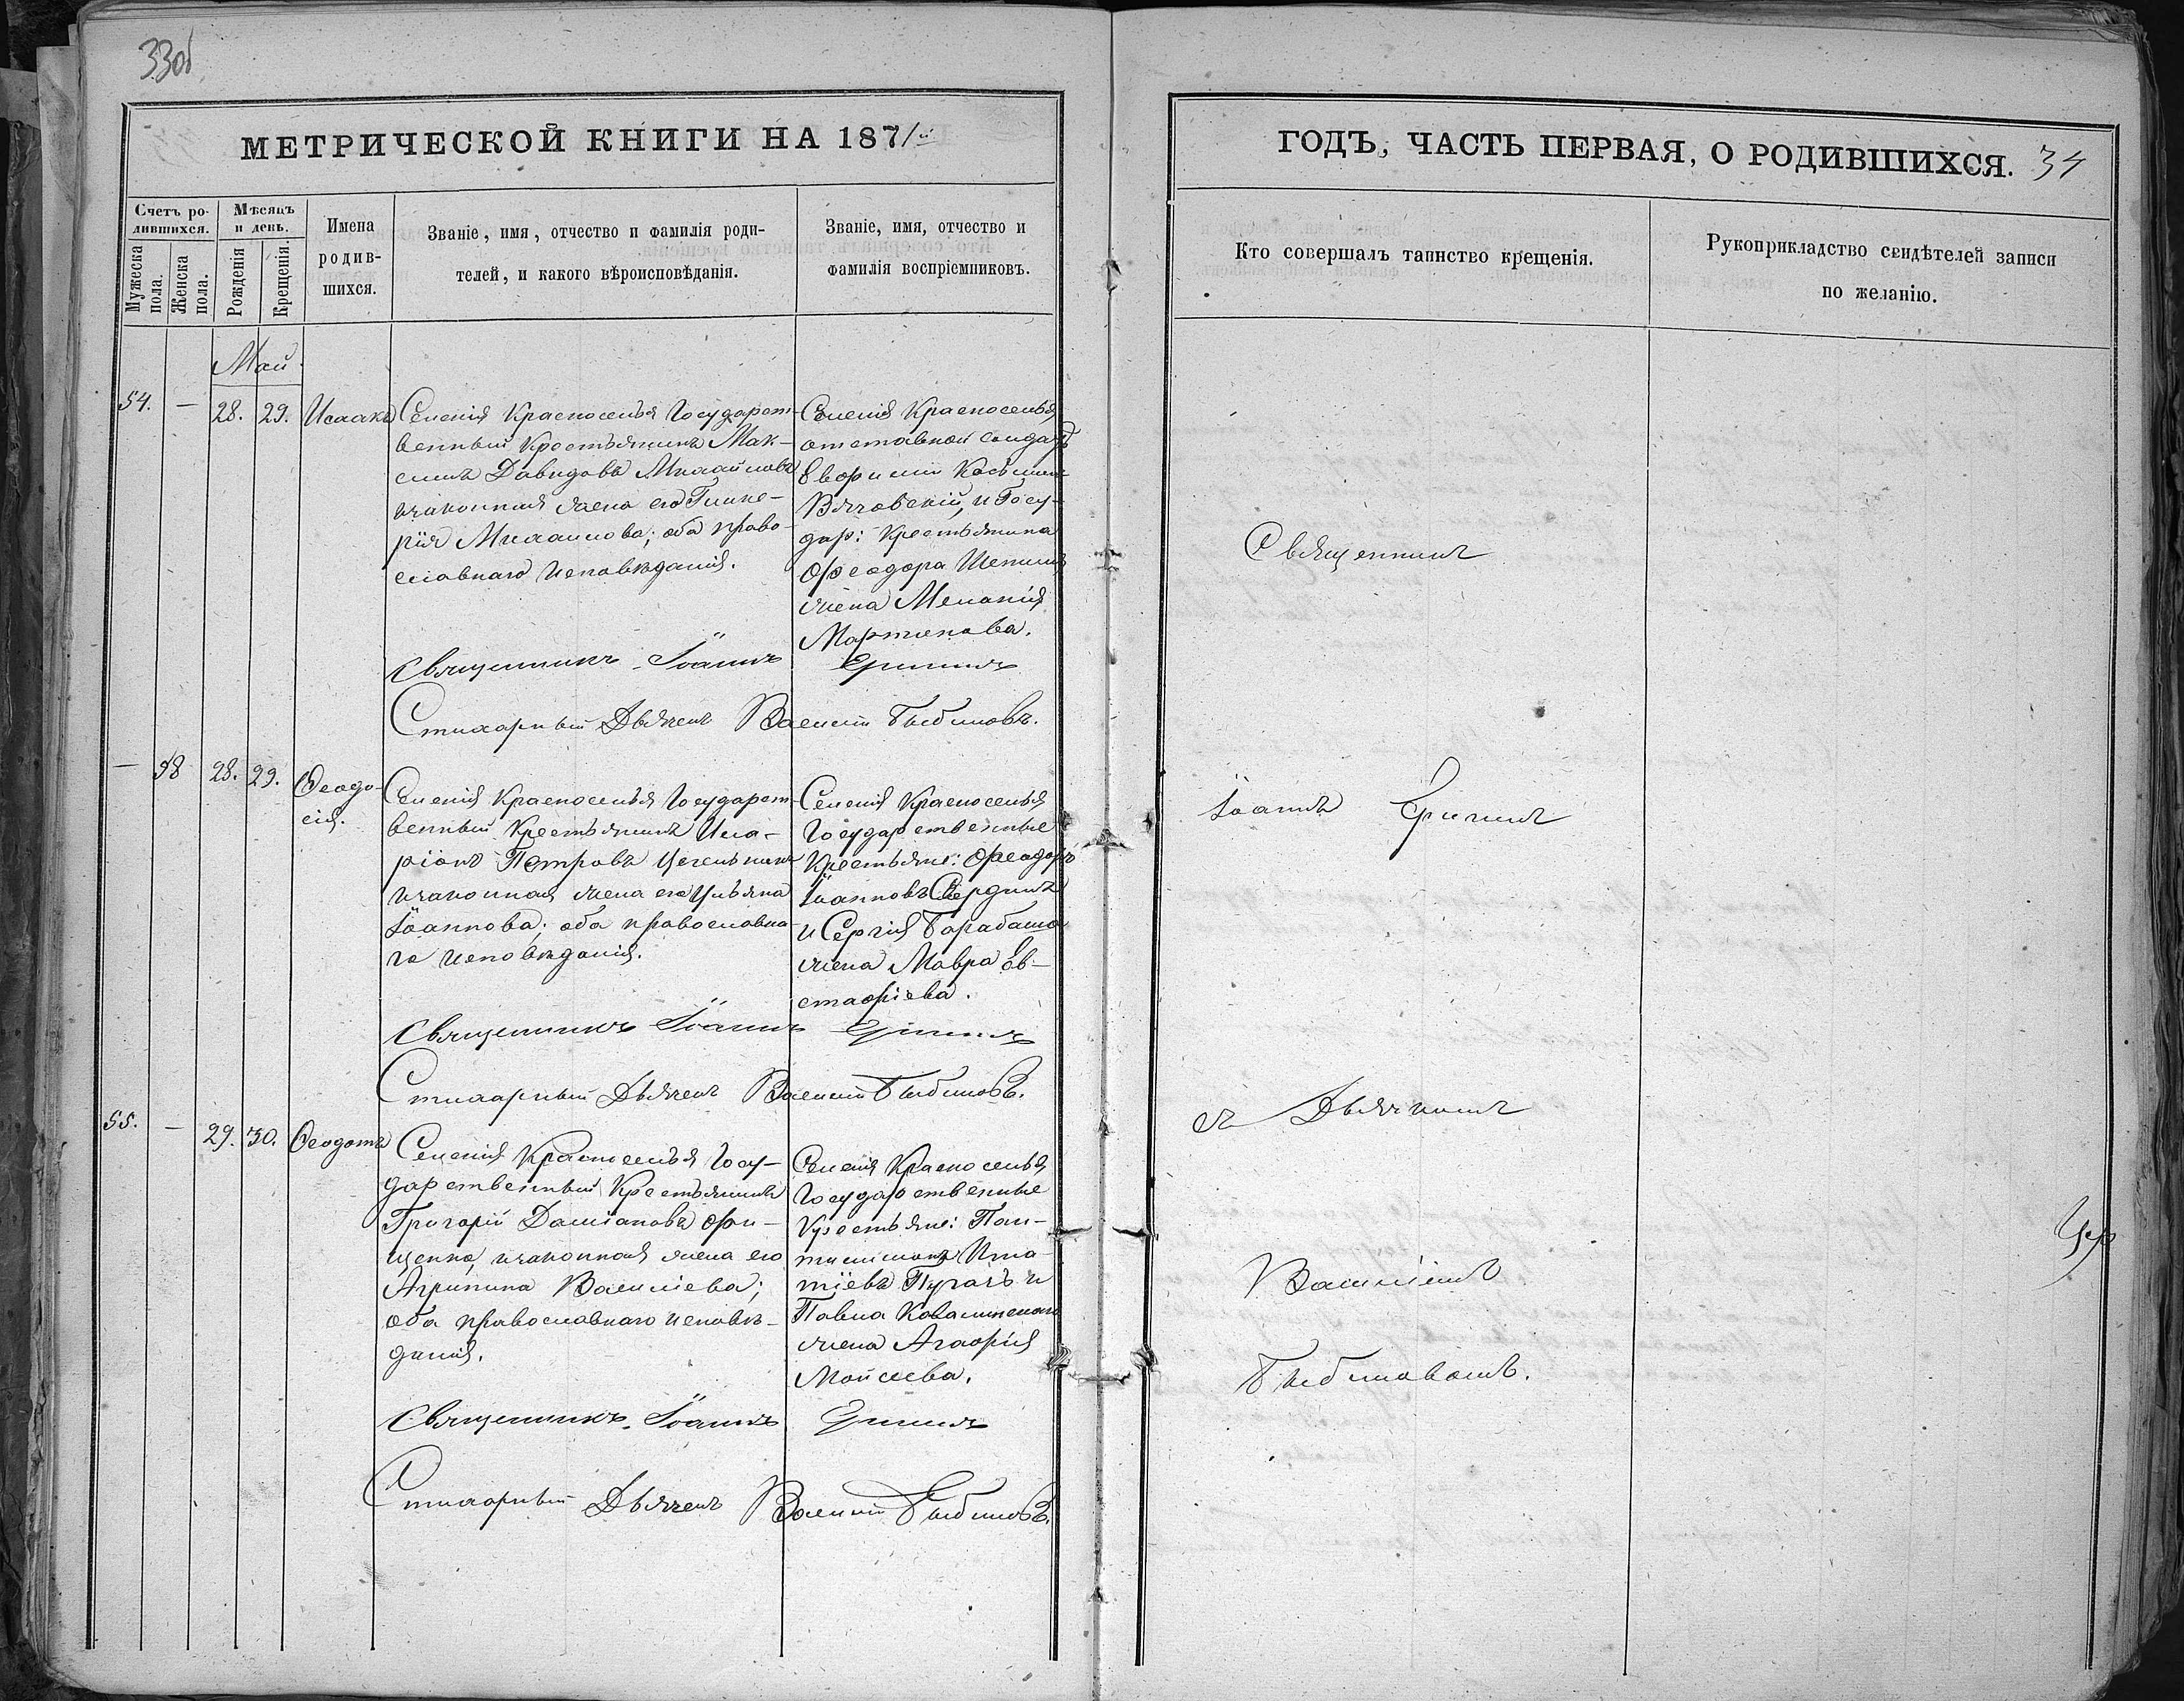 33об
МЕТРИЧЕСКОЙ КНИГИ НА 1871й
Счетъ ро-
дившихся.
Мужеска пола.
Женска пола.
Мѣсяцъ
и день.
Рожденія
Крещенія.
Имена
родив-
шихся.
Званіе, имя, отчество и фамилія роди-
телей, и какого вѣроисповѣданія.
Званіе, имя, отчество и
фамилія воспріемниковъ.
Май.
54. — 28. 29. Исаакъ
Селенія Красноселья Государст-
венный Крестьянинъ Мак-
симъ Давидовъ Михайловъ
и законная жена его Глике-
рія Михаилова; оба право-
славнаго исповѣданія.
Селенія Красноселья
отставной солдатъ
Косьмин
Вячковскій, и Госу-
дар: Крестьянина
Ѳеодора
жена Меланія
Мартинова.
Священникъ Іоаннъ
Стихарный Дьячекъ Василій
— 58 28. 29. Ѳеодо-
сія.
Селенія Красноселья Государст-
венный Крестьянинъ Ила-
ріонъ Петровъ
и законная жена его Ульяна
Іоаннова; оба православна-
го исповѣданія.
Селенія Красноселья
Государственные
Крестьяне: Ѳеодоръ
Іоанновъ
и Сергія Барабаша
жена Мавра Ев-
стафіева.
Священникъ Іоаннъ
Стихарный Дьячекъ Василій
55. — 29. 30. Ѳеодотъ
Селенія Красноселья Госу-
дарственный Крестьянинъ
Григорій Даміановъ Они-
щенко, и законная жена его
Агрипина Василіева;
оба православнаго исповѣ-
данія.
Селенія Красноселья
Государственные
Крестьяне: Пан-
телимонъ Игна-
тіевъ Пугачъ и
Павла
жена Агафія
Мойсеева.
Священникъ Іоаннъ
Стихарный Дьячекъ Василій
ГОДЪ, ЧАСТЬ ПЕРВАЯ, О РОДИВШИХСЯ. 34
Кто совершалъ таинство крещенія.
Рукоприкладство свидѣтелей записи
по желанію.
Священникъ
Іоаннъ
съ Дьячкомъ
Василіемъ